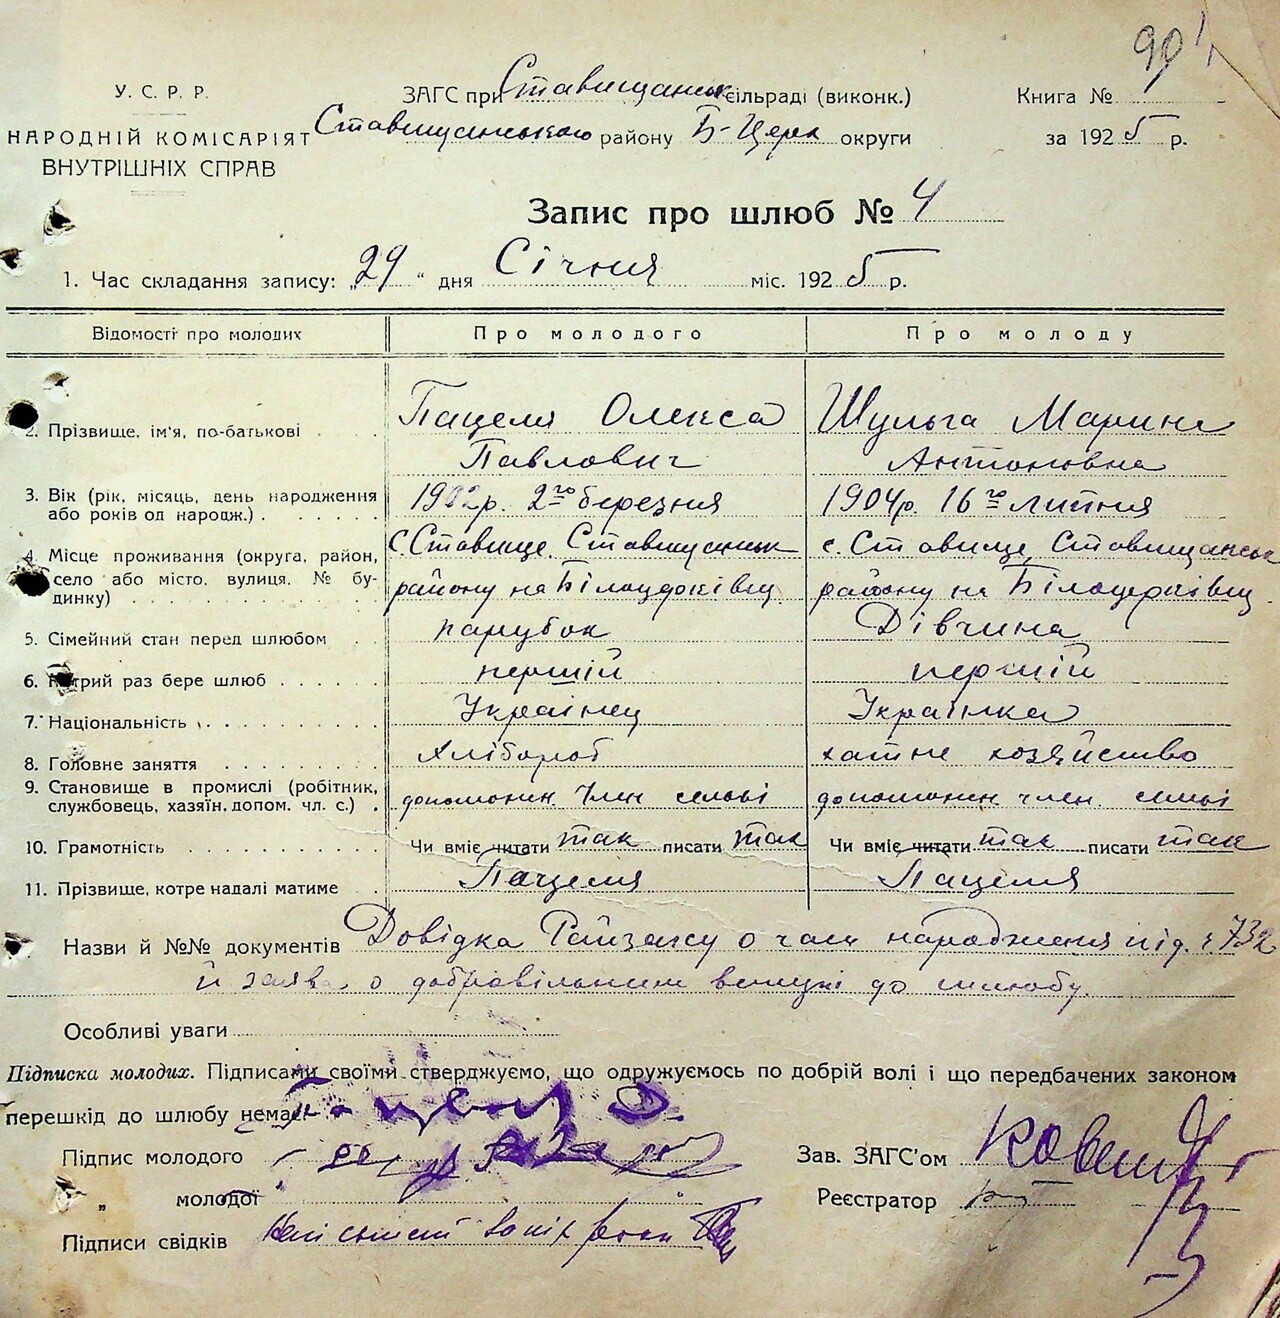 90
У. С. Р. Р.
НАРОДНІЙ КОМІСАРІЯТ
ВНУТРІШНІХ СПРАВ
ЗАГС при Ставищанськ сільраді (виконк.)
Ставищанського району Б-Церк округи
Книга №
за 1925 р.
Запис про шлюб № 4
1. Час складання запису: „29“ дня Січня міс. 1925 р.
Відомості про молодих Про молодого Про молоду
2. Прізвище, ім'я, по-батькові Пацеля Олекса Шульга Марина
Павлович Антоновна
3. Вік (рік, місяць, день народження або років од народж.) 1902 р. 2го березня 1904 р. 16го липня
4. Місце проживання (округа, район, село або місто, вулиця, № будинку) с. Ставище, Ставищанськ с. Ставище, Ставищанськ
району на Білоцерківщ. району на Білоцерківщ.
5. Сімейний стан перед шлюбом парубок Дівчина
6. Котрий раз бере шлюб першій першій
7. Національність Українец Українка
8. Головне заняття хлібороб хатне хозяйство
9. Становище в промислі (робітник, службовець, хазяїн, допом. чл. с.) допоможн. член семьі допоможн. член. семьі
10. Грамотність Чи вміє читати так писати так Чи вміє читати так писати так
11. Прізвище, котре надалі матиме Пацеля Пацеля
Назви й №№ документів Довідка Райзагсу о часи народження під. ч 732
й заява о добровільному вступі до шлюбу.
Особливі уваги
Підписка молодих. Підписами своїми стверджуємо, що одружуємось по добрій волі і що передбачених законом
перешкід до шлюбу немає.
Підпис молодого
„ молодої
Підписи свідків
Зав. ЗАГС'ом
Реєстратор